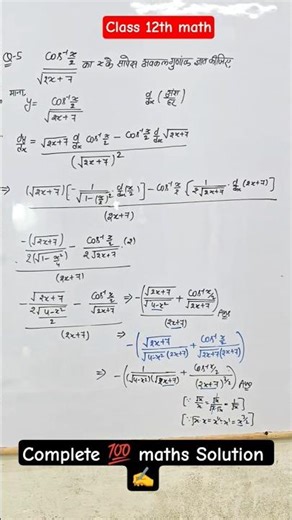 Class 12th math
Q-5 cos⁻¹ x/2 / √2x+7 का x के सापेक्ष अवकल गुणांक ज्ञात कीजिए
माना, y = cos⁻¹ x/2 / √2x+7    d/dx (
dy/dx = √2x+7 d/dx cos⁻¹ x/2 - cos⁻¹ x/2 d/dx √2x+7 / (√2x+7)²
⇒ (√2x+7) [-1/√1-(x/2)² · d/dx (x/2)] - cos⁻¹ x/2 [1/2√2x+7 · d/dx (2x+7)] / (2x+7)
-(√2x+7) / 2(√1-x²/4) - cos⁻¹ x/2 / 2√2x+7 · (2) / (2x+7)
-√2x+7 / 2√4-x²/2 - cos⁻¹ x/2 / √2x+7 / (2x+7) ⇒ -(√2x+7/√4-x² + cos⁻¹ x/2 / √2x+7) / (2x+7) Ans
-(√2x+7 / √4-x² (2x+7) + cos⁻¹ x/2 / √2x+7 (2x+7))
⇒ -(1 / (√4-x²)(√2x+7) + cos⁻¹ x/2 / (2x+7)^3/2) Ans
Complete 💯 maths Solution
✍️